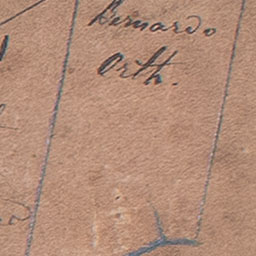 Bernardo
Orth.